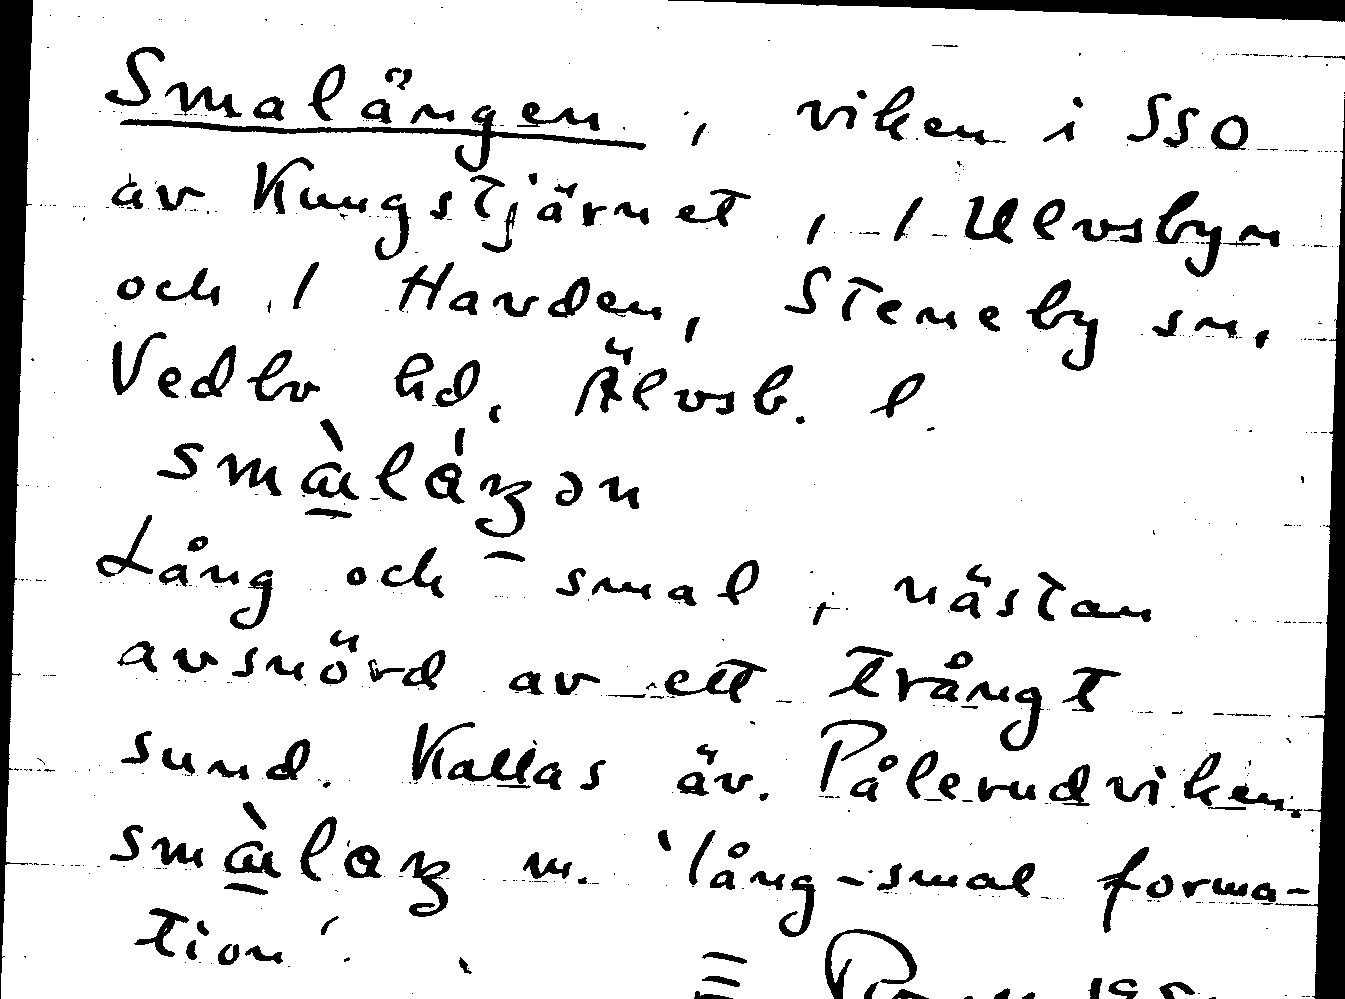 Smalängen, viken i SSO
av Kungstjärnet, / Ulvsbyn
och / Havden, Steneby sn,
Vedbo hd, Älvsb. l.
Lång och smal, nästan
avsnörd av ett trångt
sund. Kallas äv. Pålerudviken.
m. 'lång-smal forma-
tion'.